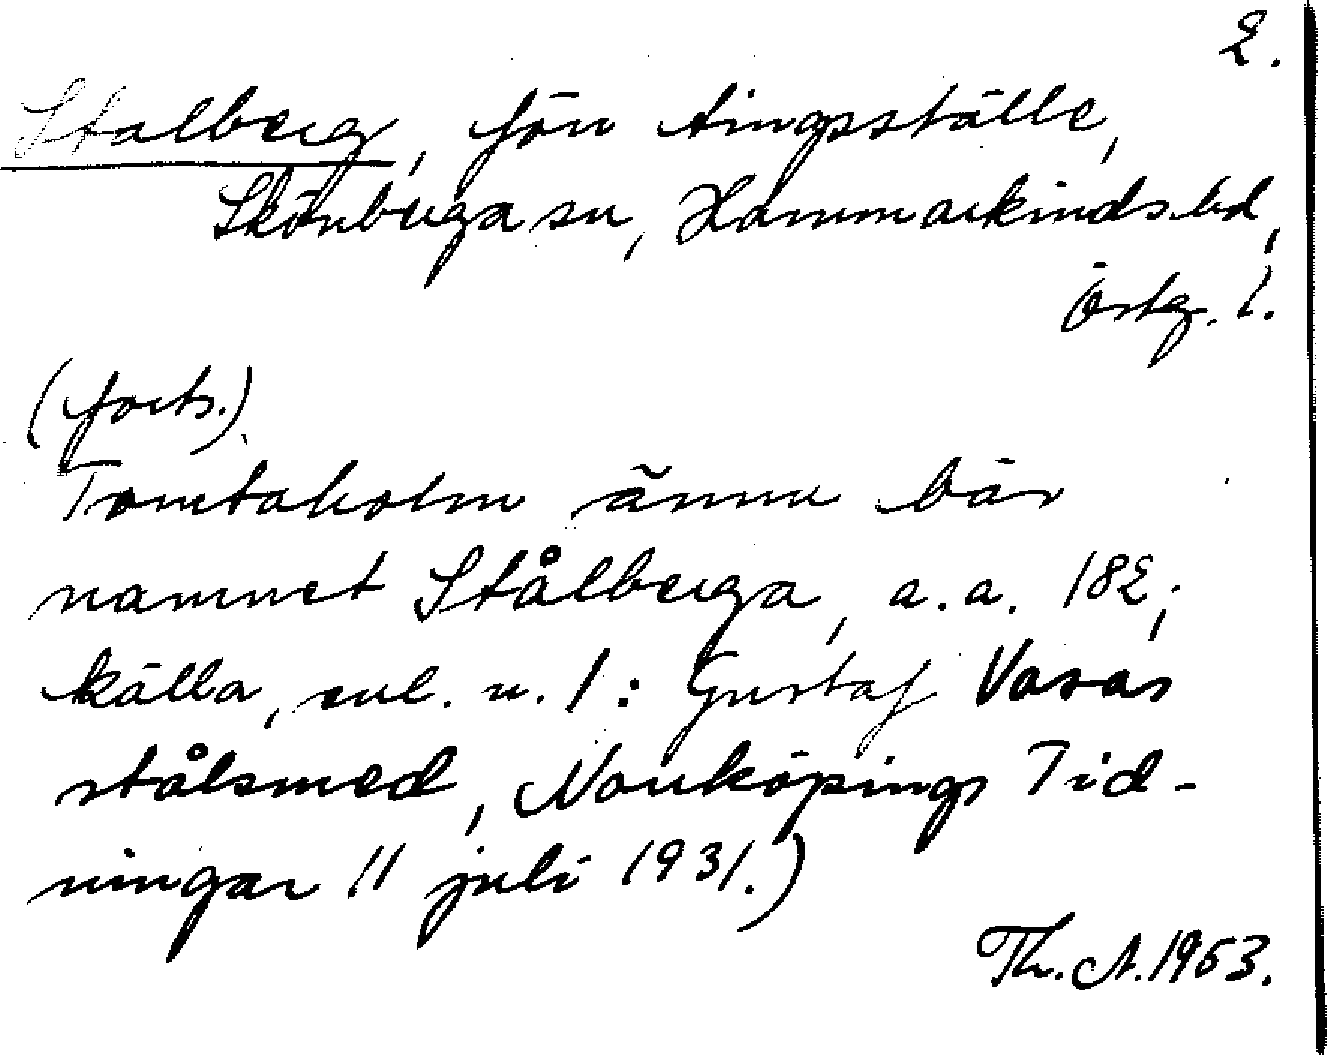 2.
Stalberg, förr tingsställe,
Skönberga sn, Hammarkinds hd,
Östg. l.
(forts.)
Tomtaholm ännu bär
namnet Stålberga, a.a. 182;
källa, enl. n. 1: Gustaf Vasas
stålsmed, Norrköpings Tid-
ningar 11 juli 1931.)
Th. A. 1953.